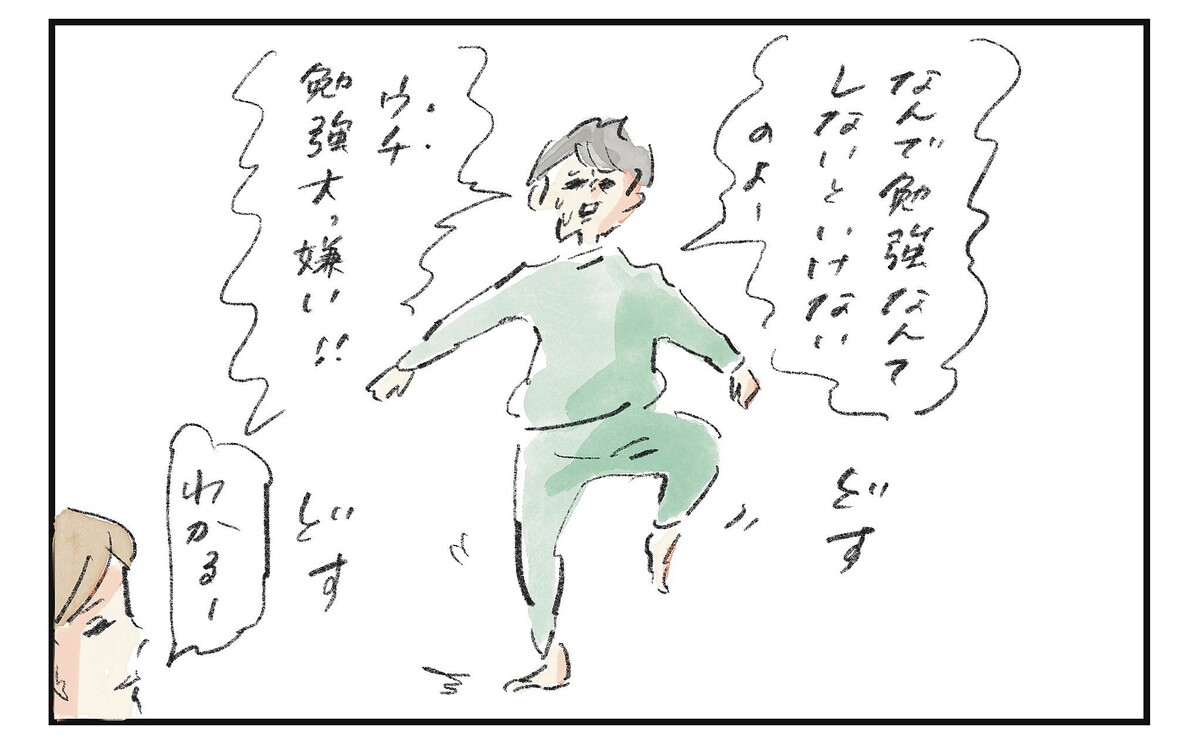 なんで勉強なんて
しないといけない
のよー
ウチ
勉強大っ嫌い!!
どす
どす
わかるー